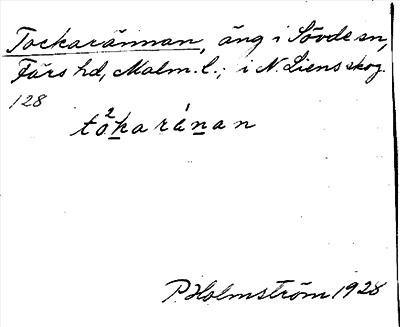 Tockarännan, äng i Sövde sn,
Färs hd, Malm. l.; i N. Liens skog.
128
tò²ka ránan
P. Holmström 1928